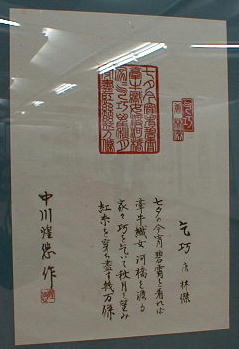 乞巧
七夕今宵看碧霄
牽牛織女渡河橋
家々乞巧望秋月
穿盡紅絲幾万條
乞巧 唐 林傑
七夕の今宵碧霄を看れば
牽牛織女河橋を渡る
家々巧を乞いて秋月を望み
紅糸を穿ち盡す幾万條
中川 悠 作